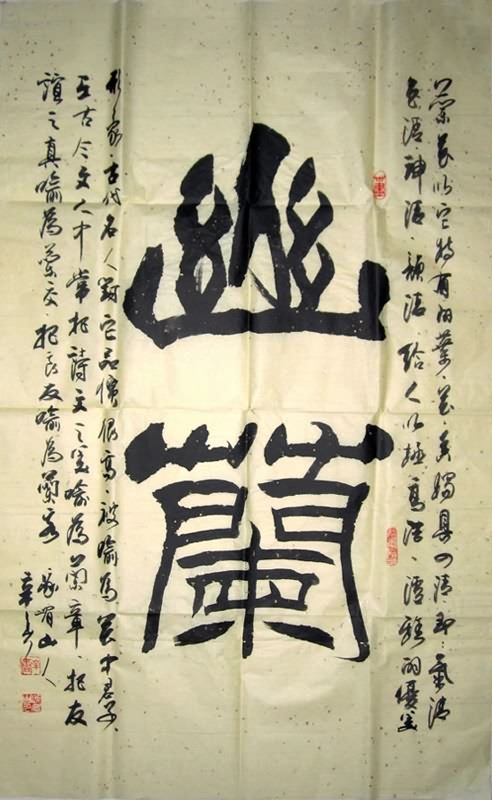 蘭花以它特有的葉、花、香獨具四清即氣清
色清、神清、韻清、給人以極高潔、清雅的優美
幽蘭
形象、古代名人對它品價很高、被喻為花中君子、
在古今文人中常把詩文之美喻為蘭章把友
誼之真喻為蘭交、把良友喻為蘭客
峨眉山人